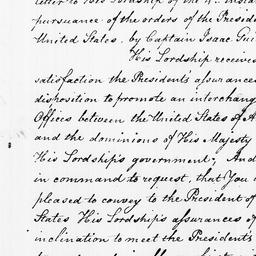 letter to His Lordship of the 4th
pursuance of the orders of the Preside
United States, by Captain Isaac
His Lordship receives
satisfaction the President's assurances
disposition to promote an interchang
Offices between the United States of A
and the dominions of His Majesty
His Lordship's government; And
in command to request, that You
pleased to convey to the President of
States His Lordship's assurances of
inclination to meet the President's